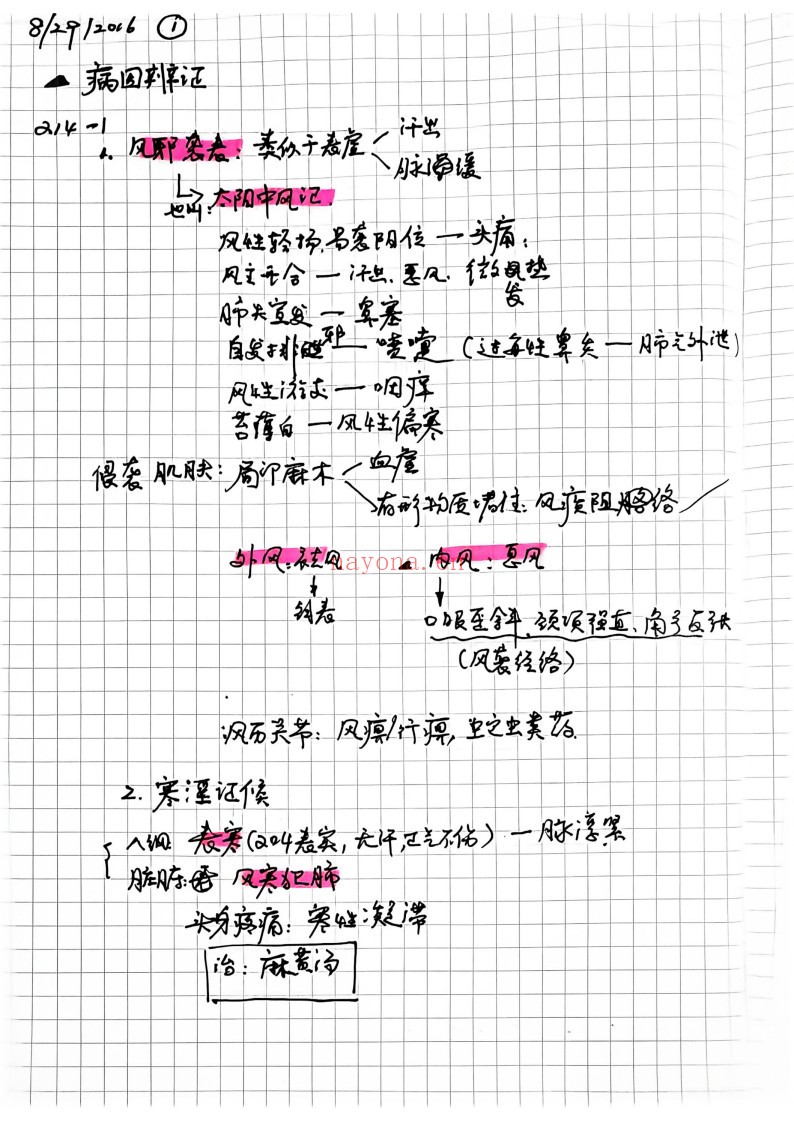 8/29/2016 ①
▲ 病因辨证
214-1
1. 风邪袭表：类似于表虚 汗出
脉浮缓
也叫：太阳中风证.
风性轻扬,易袭阳位 — 头痛；
风主开合 — 汗出.恶风.微发热
肺失宣发 — 鼻塞
自发排邪 — 喷嚏 (过敏性鼻炎 — 肺气外泄)
风性游走 — 咽痒
苔薄白 — 风性偏寒
侵袭肌肤：局部麻木 血虚
有形物质堵住：风痰阻络
外风：祛风 ▲ 内风：息风
解表
口眼歪斜.颈项强直、角弓反张
(风袭经络)
风历关节：风痹/行痹,虫类药.
2. 寒淫证候
表寒 (204表实,无汗,正气不伤) — 脉浮紧
脏腑： 风寒犯肺
头身疼痛：寒性凝滞
治：麻黄汤
nayona.cn